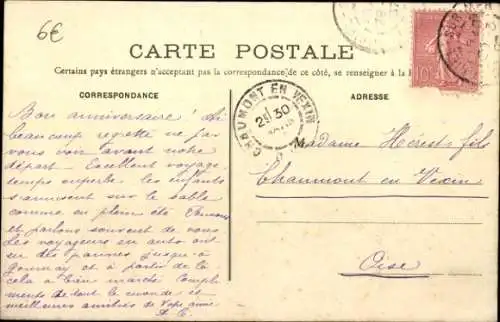 6€
CARTE POSTALE
Certains pays étrangers n'acceptant pas la correspondance de ce côté, se renseigner à la
CORRESPONDANCE
ADRESSE
CHAUMONT EN VEXIN
10
Bon anniversaire! J'ai
beaucoup regretté ne pas
vous voir avant notre
départ. Excellent voyage
temps superbe les enfants
s'amusent sur le sable
comme en plein été
et parlons souvent de vous
Les voyageurs en auto ont
eu des pannes jusqu'à
Gournay et à partir de là
cela a bien marché Compli-
ments de tout le monde et
meilleures amitiés de
Madame fils
Chaumont en Vexin
Oise